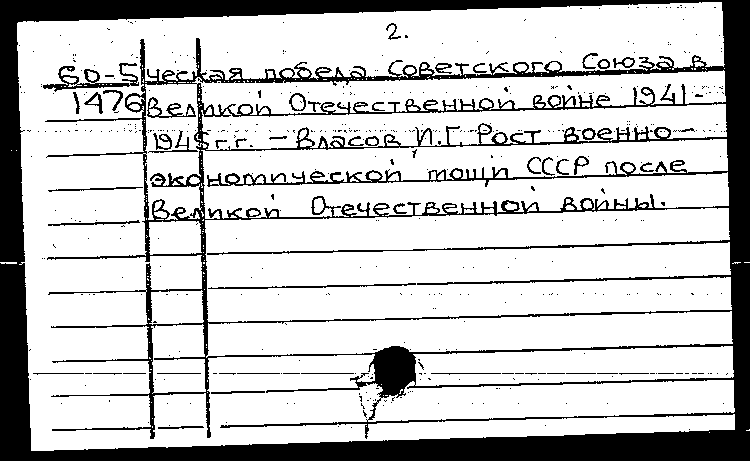 2.
60-5 ческая победа Советского Союза в
1476 Великой Отечественной войне 1941-
1945 г.г. - Власов И.Г. Рост военно-
экономической мощи СССР после
Великой Отечественной войны.